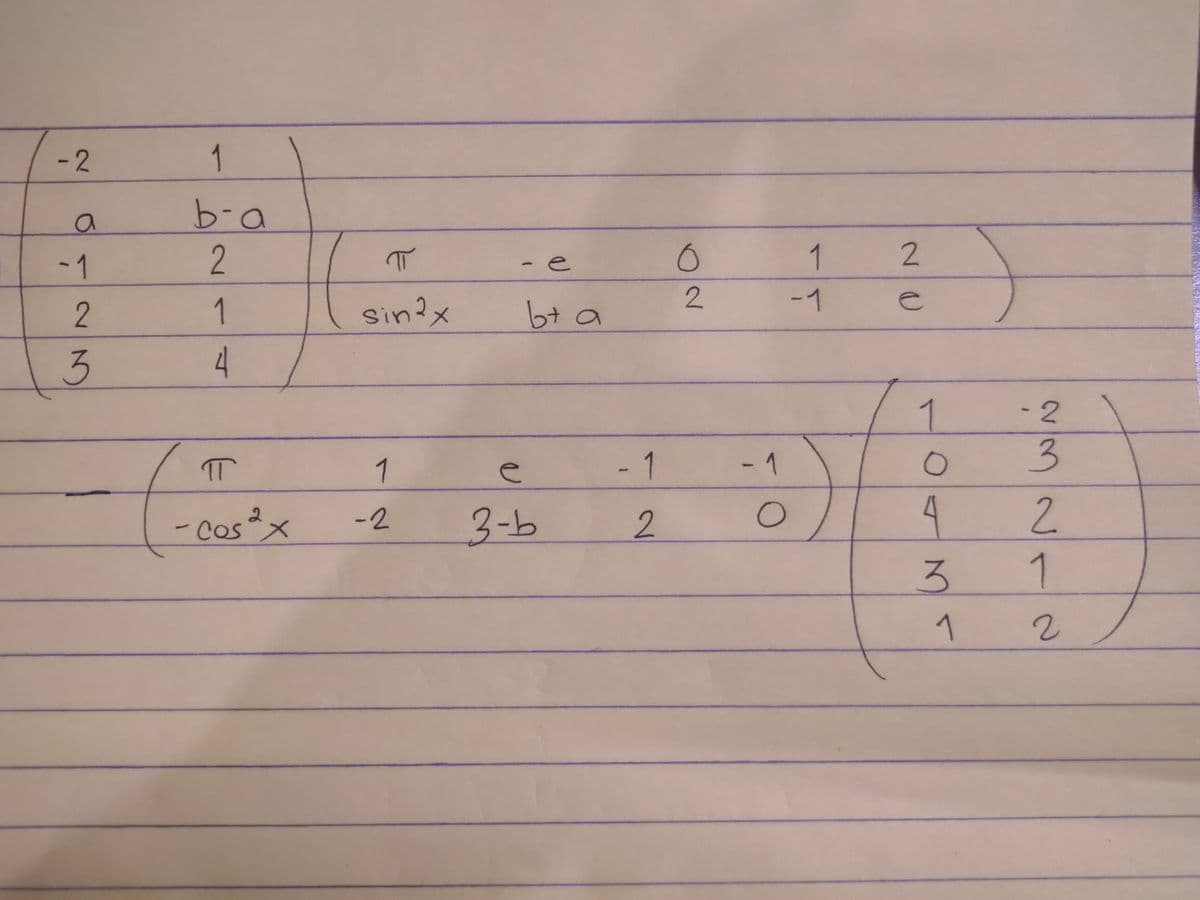 -2 1
a b-a
-1 2
2 1
3 4
π -e 0 1 2
sin²x b+a 2 -1 e
− π 1 e -1 -1
-cos²x -2 3-b 2 0
1 -2
0 3
4 2
3 1
1 2